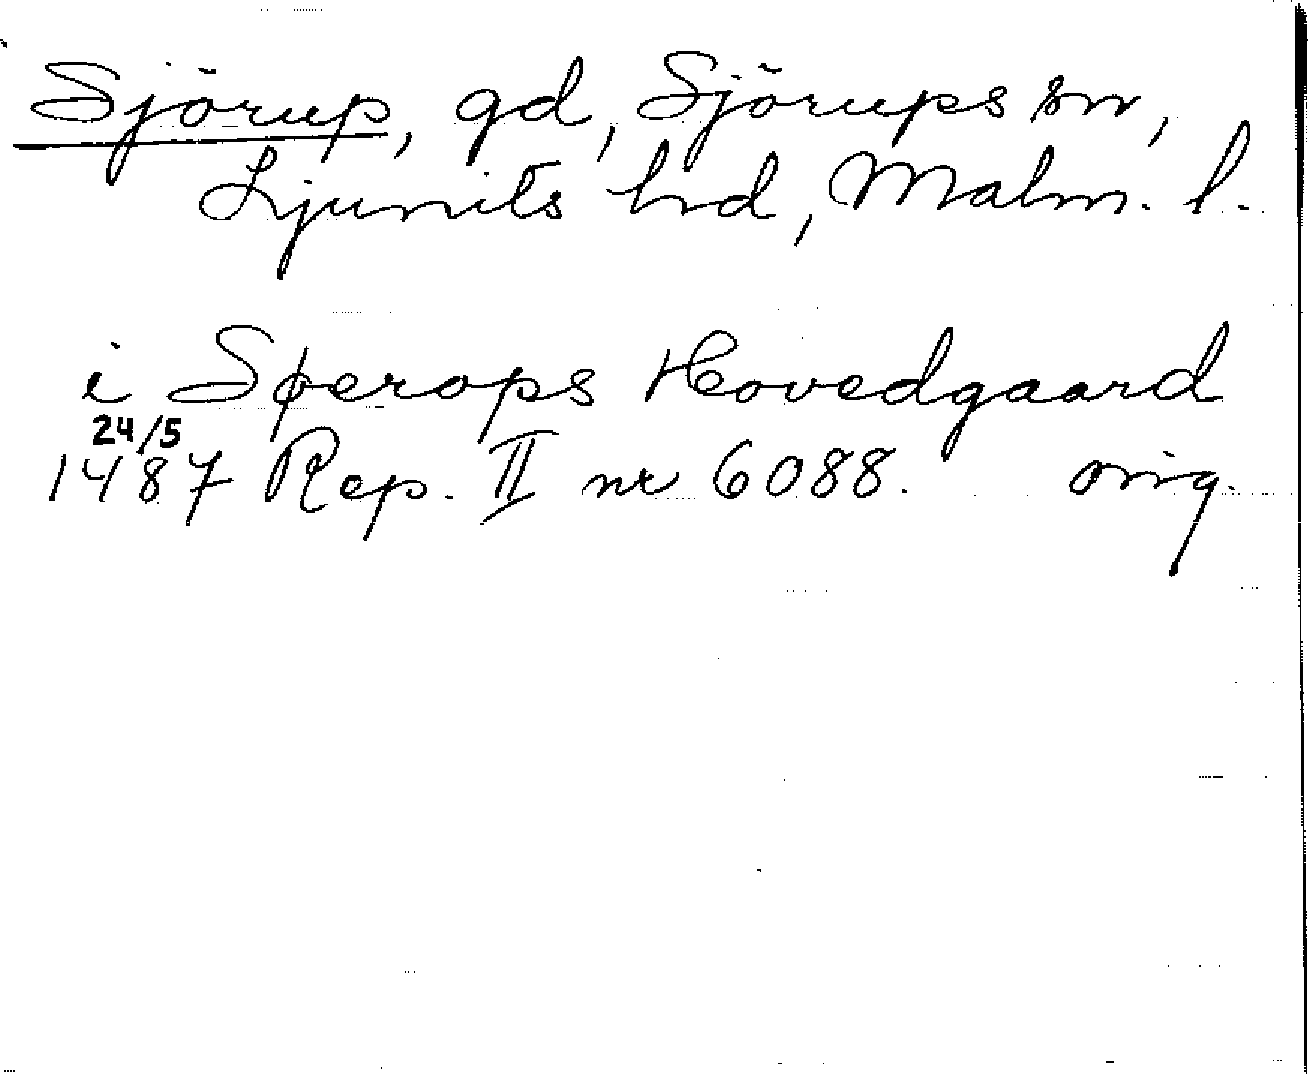 Sjörup, gd, Sjörups sn,
Ljunits hd, Malm. l.
i Søerops Hovedgaard
24/5
1487 Rep. II nr 6088. orig.